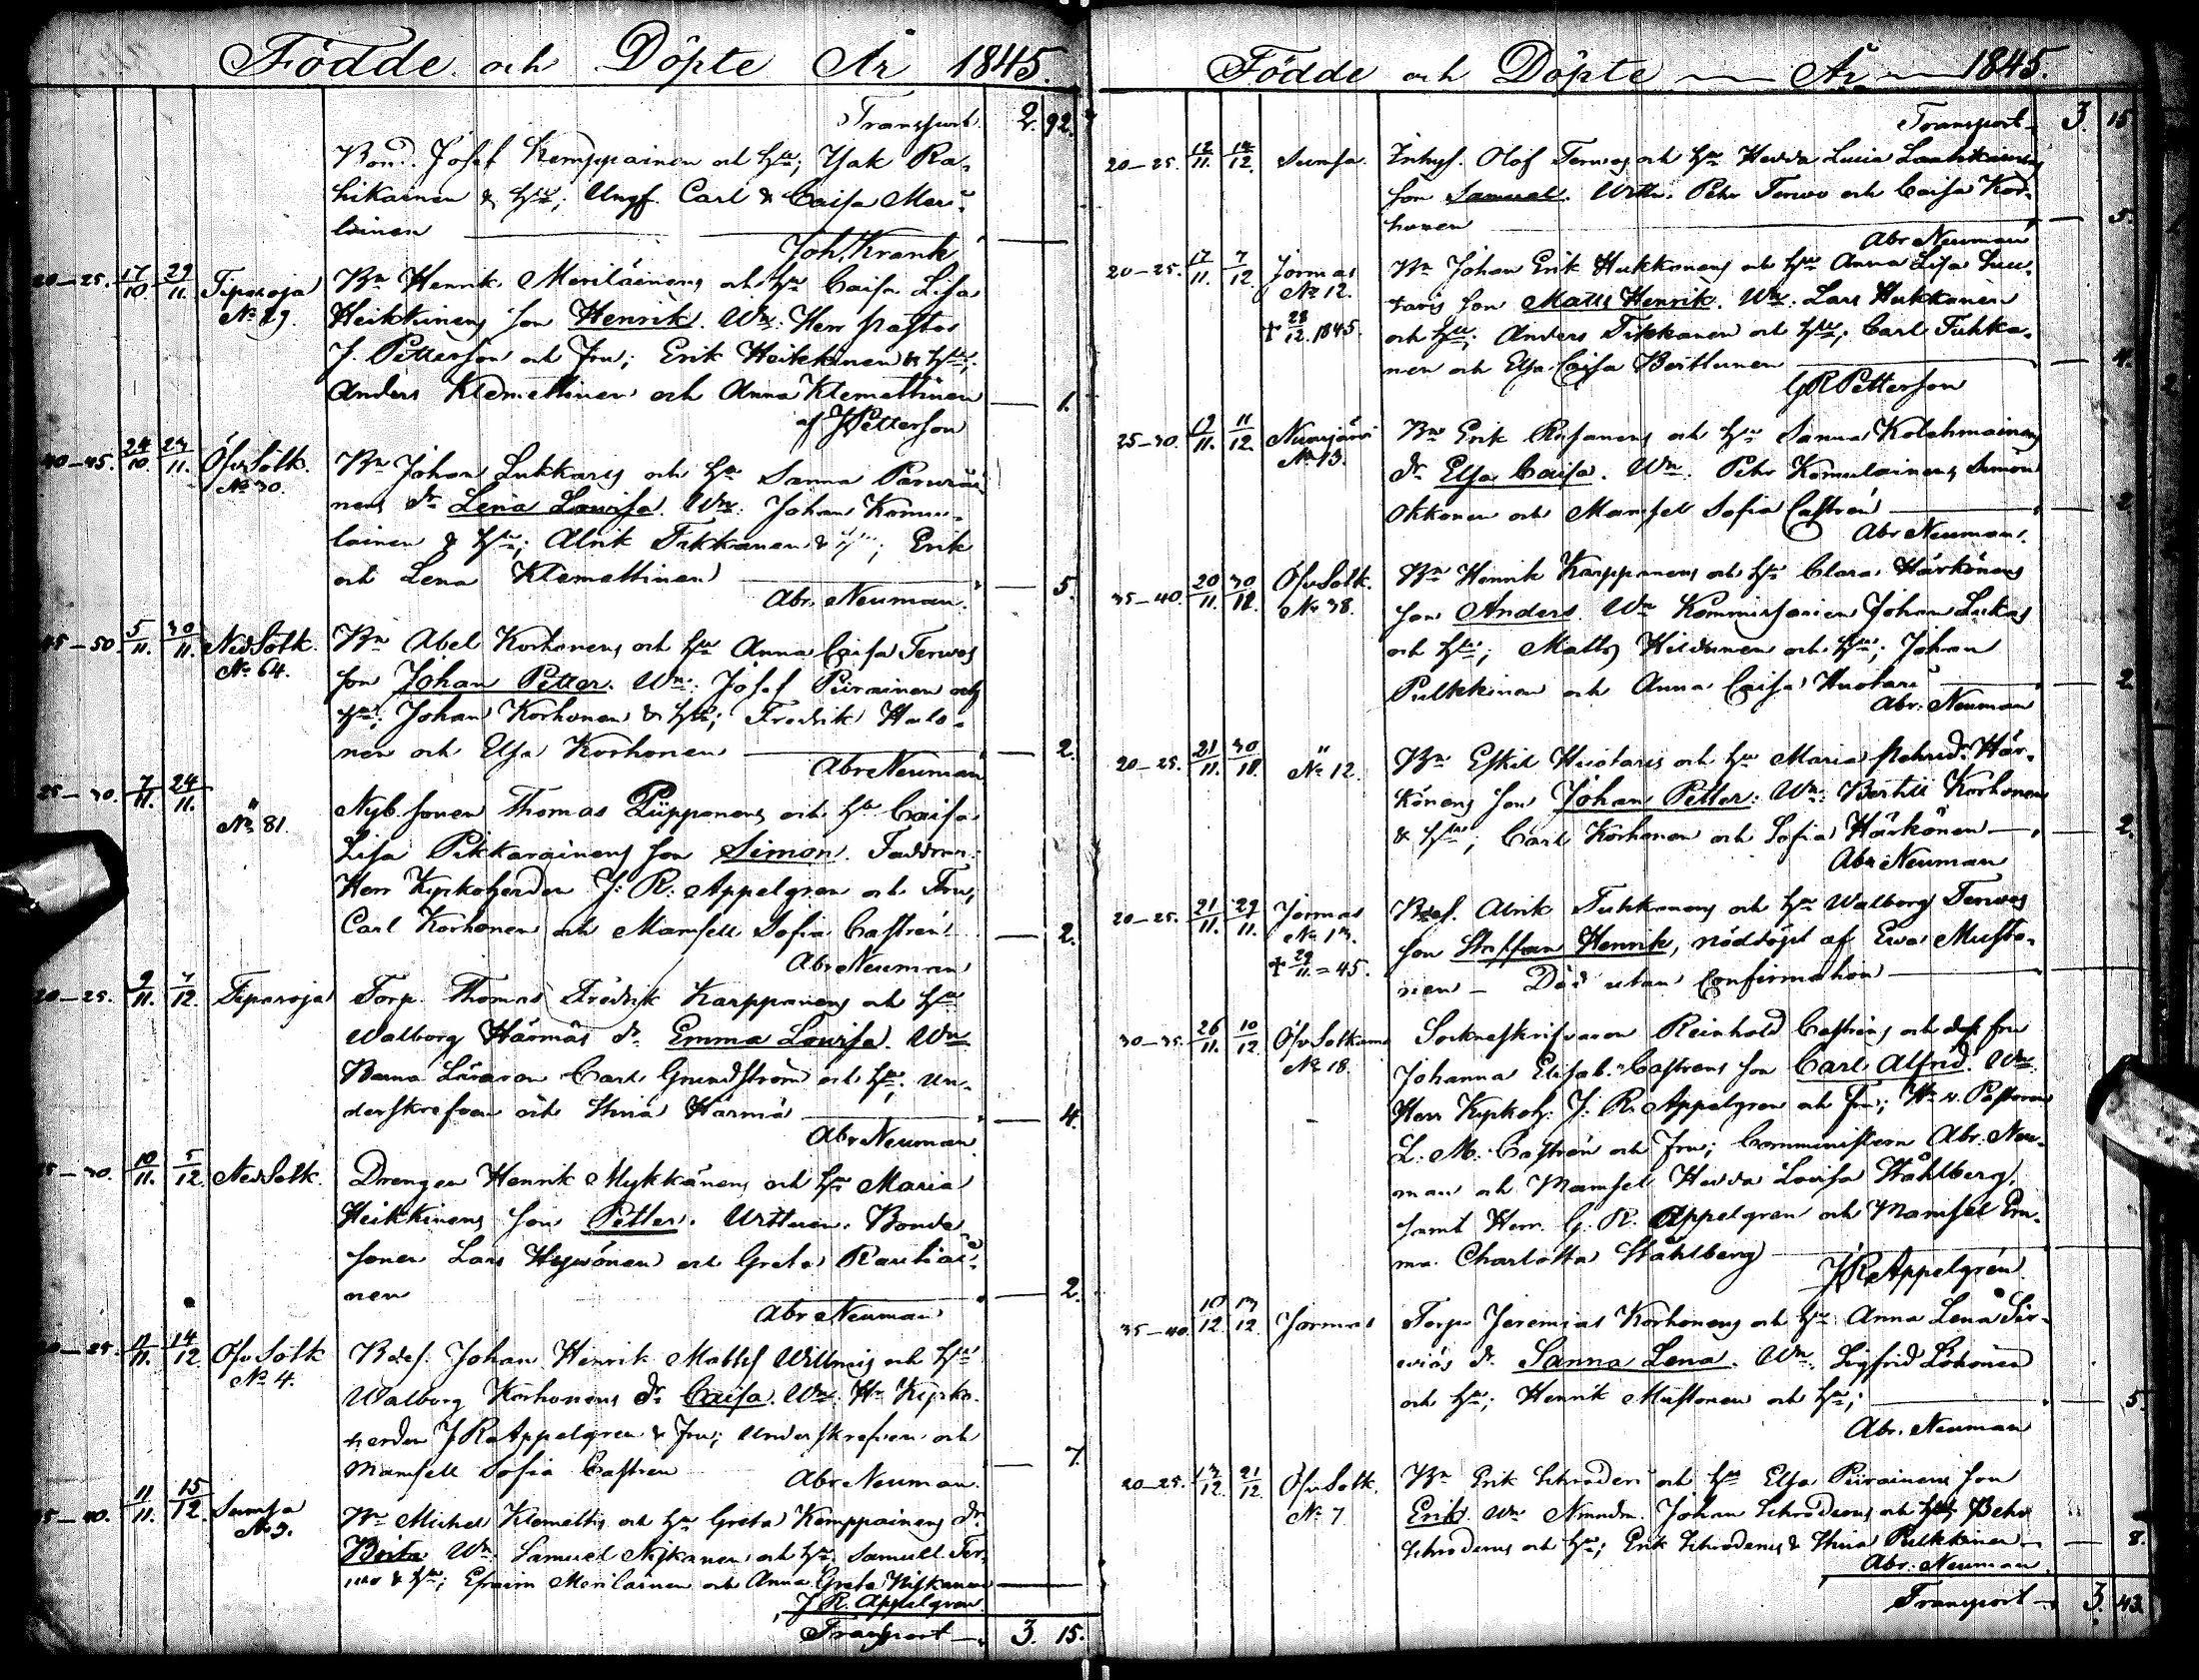 Födde och Döpte År 1845.
Transport 2. 92.
Bond. Josef Kemppainen och Hu; Isak Ra-
hikainen & Hu; Ungf. Carl & Caisa Meri-
läinen
Joh. Krank
20–25. 17/10 29/11. Tipasoja Bn Henrik Meriläinens och Hu Caisa Lisa
No 29. Heikkinens son Henrik. Wn: Herr Pastor
J. Petterson och Fru; Erik Heikkinen & Hu;
Anders Klemettinen och Anna Klemettinen 1.
af J Petterson
40–45. 24/10 23/11. Öfv Sotk. Bn Johan Lukkaris och Hu Sanna Parviai-
No 30. nens dr Lena Lovisa. Wn: Johan Komu-
lainen & Hu; Alrik Tikkanen & Hu; Erik
och Lena Klemettinen 5.
Abr. Neuman.
45–50 5/11. 30/11. Ned Sotk. Bn Abel Korhonens och Hu Anna Caisa Terwos
No 64. son Johan Petter. Wn: Josef Piirainen och
Hu; Johan Korhonen & Hu; Fredrik Halo-
nen och Elsa Korhonen 2.
Abr Neuman
25–30. 7/11. 24/11.
" No 81. Nyb. sonen Thomas Piipponens och Hu Caisa
Lisa Pikkarainens son Simon. Faddrar:
Herr Kyrkoherden J. R. Appelgren och Fru;
Carl Korhonen och Mamsell Sofia Castrén 2.
Abr Neuman
20–25. 9/11. 7/12. Tipasoja Torp. Thomas Fredrik Karppanens och Hu
Walborg Härmäs dr Emma Lovisa. Wn
Barna Läraren Carl Grundström och Hu; Un-
derskrefven och Stina Härmä 4.
Abr Neuman.
–30. 10/11. 5/12. Ned Sotk. Drengen Henrik Mykkänens och Hu Maria
Heikkinens son Petter. Wittnen: Bonde
sonen Lars Hywönen och Greta Rautiai-
nen 2.
Abr Neuman
–25. 11/11. 14/12. Öfv Sotk Bdes. Johan Henrik Mattss Willmis och Hu
No 4. Walborg Korhonens dr Caisa. Wn: Hr Kyrko-
herden J R Appelgren & Fru; Underskrefven och
Mamsell Sofia Castren 7.
Abr Neuman.
–40. 11/11. 15/12. Sumsa Bn Michel Klemettis och Hu Greta Kemppainens dr
No 9. Brita Wn: Samuel Niskanen och Hu; Samuel Ter-
wo & Hu; Efraim Meriläinen och Anna Greta Niskanen
J R. Appelgren.
Transport 3. 15.
Födde och Döpte År 1845.
Transport 3. 15
20–25. 12/11. 14/12. Sumsa. Inhys. Olof Terwos och Hu Hedda Lucia Laatikainens
son Samuel. Wittn. Pehr Terwo och Caisa Kor-
honen 5.
Abr Neuman
20–25. 17/11. 7/12. Jormas Bn Johan Erik Hukkanens och Hu Anna Lisa Huo-
No 12. taris son Matts Henrik. Wn: Lars Hukkanen
† 28/12. 1845. och Hu; Anders Tikkanen och Hu; Carl Tuhka-
nen och Elsa Caisa Berttunen 4.
G R Petterson
25–30. 19/11. 11/12. Nuasjärvi Bn Erik Rusanens och Hu Sanna Kolehmainens
No 13. dr Elsa Caisa. Wn. Pehr Komulainens Simon
Okkonen och Mamsell Sofia Castrén 2.
Abr Neuman.
35–40. 20/11. 30/11. Öfv Sotk. Bn Henrik Karppanens och Hu Clara Härkönens
No 38. son Anders. Wn Kommissarien Johan Lukas
och Hu; Matts Hiltunen och Hu; Johan
Pulkkinen och Anna Caisa Huotari 2
Abr. Neuman
20–25. 21/11. 30/11. " No 12. Bn Eskil Huotaris och Hu Maria Här-
könens son Johan Petter. Wn: Bertill Korhonen
& Hu; Carl Korhonen och Sofia Härkönen 2.
Abr Neuman
20–25. 21/11. 29/11. Jormas Bdes. Alrik Tuhkanens och Hu Walborg Terwos
No 13. son Steffan Henrik, nöddöpt af Ewa Musto-
† 29/11. = 45. nen – Död utan Confirmation
30–35. 26/11. 10/12. Öfv Sotkamo Sockneskrifvaren Reinhold Castréns och dess fru
No 18. Johanna Elisab. Castrens son Carl Alfrid. Wn
Herr Kyrkoh. J. R. Appelgren och Fru; Hr v. Pastoren
L. M. Castrén och Fru; Comministern Abr. Neu-
man och Mamsel Hedda Lovisa Ståhlberg,
samt Herr G. R. Appelgren och Mamsel Em-
ma Charlotta Ståhlberg
J R Appelgrén.
35–40. 10/12. 13/12. Jormas Torp. Jeremias Korhonens och Hu Anna Lena Sir-
wiös dr Sanna Lena. Wn: Sigfrid Löhönen
och Hu; Henrik Mustonen och Hu; 5.
Abr. Neuman
20–25. 13/12. 21/12. Öfv Sotk. Bn Erik Schroderi och Hu Elsa Piirainens son
No 7 Erik. Wn Nmndn. Johan Schroderus och Hu Pehr
Schroderus och Hu; Erik Schroderus & Stina Pulkkinen 8.
Abr. Neuman.
Transport 3. 43.